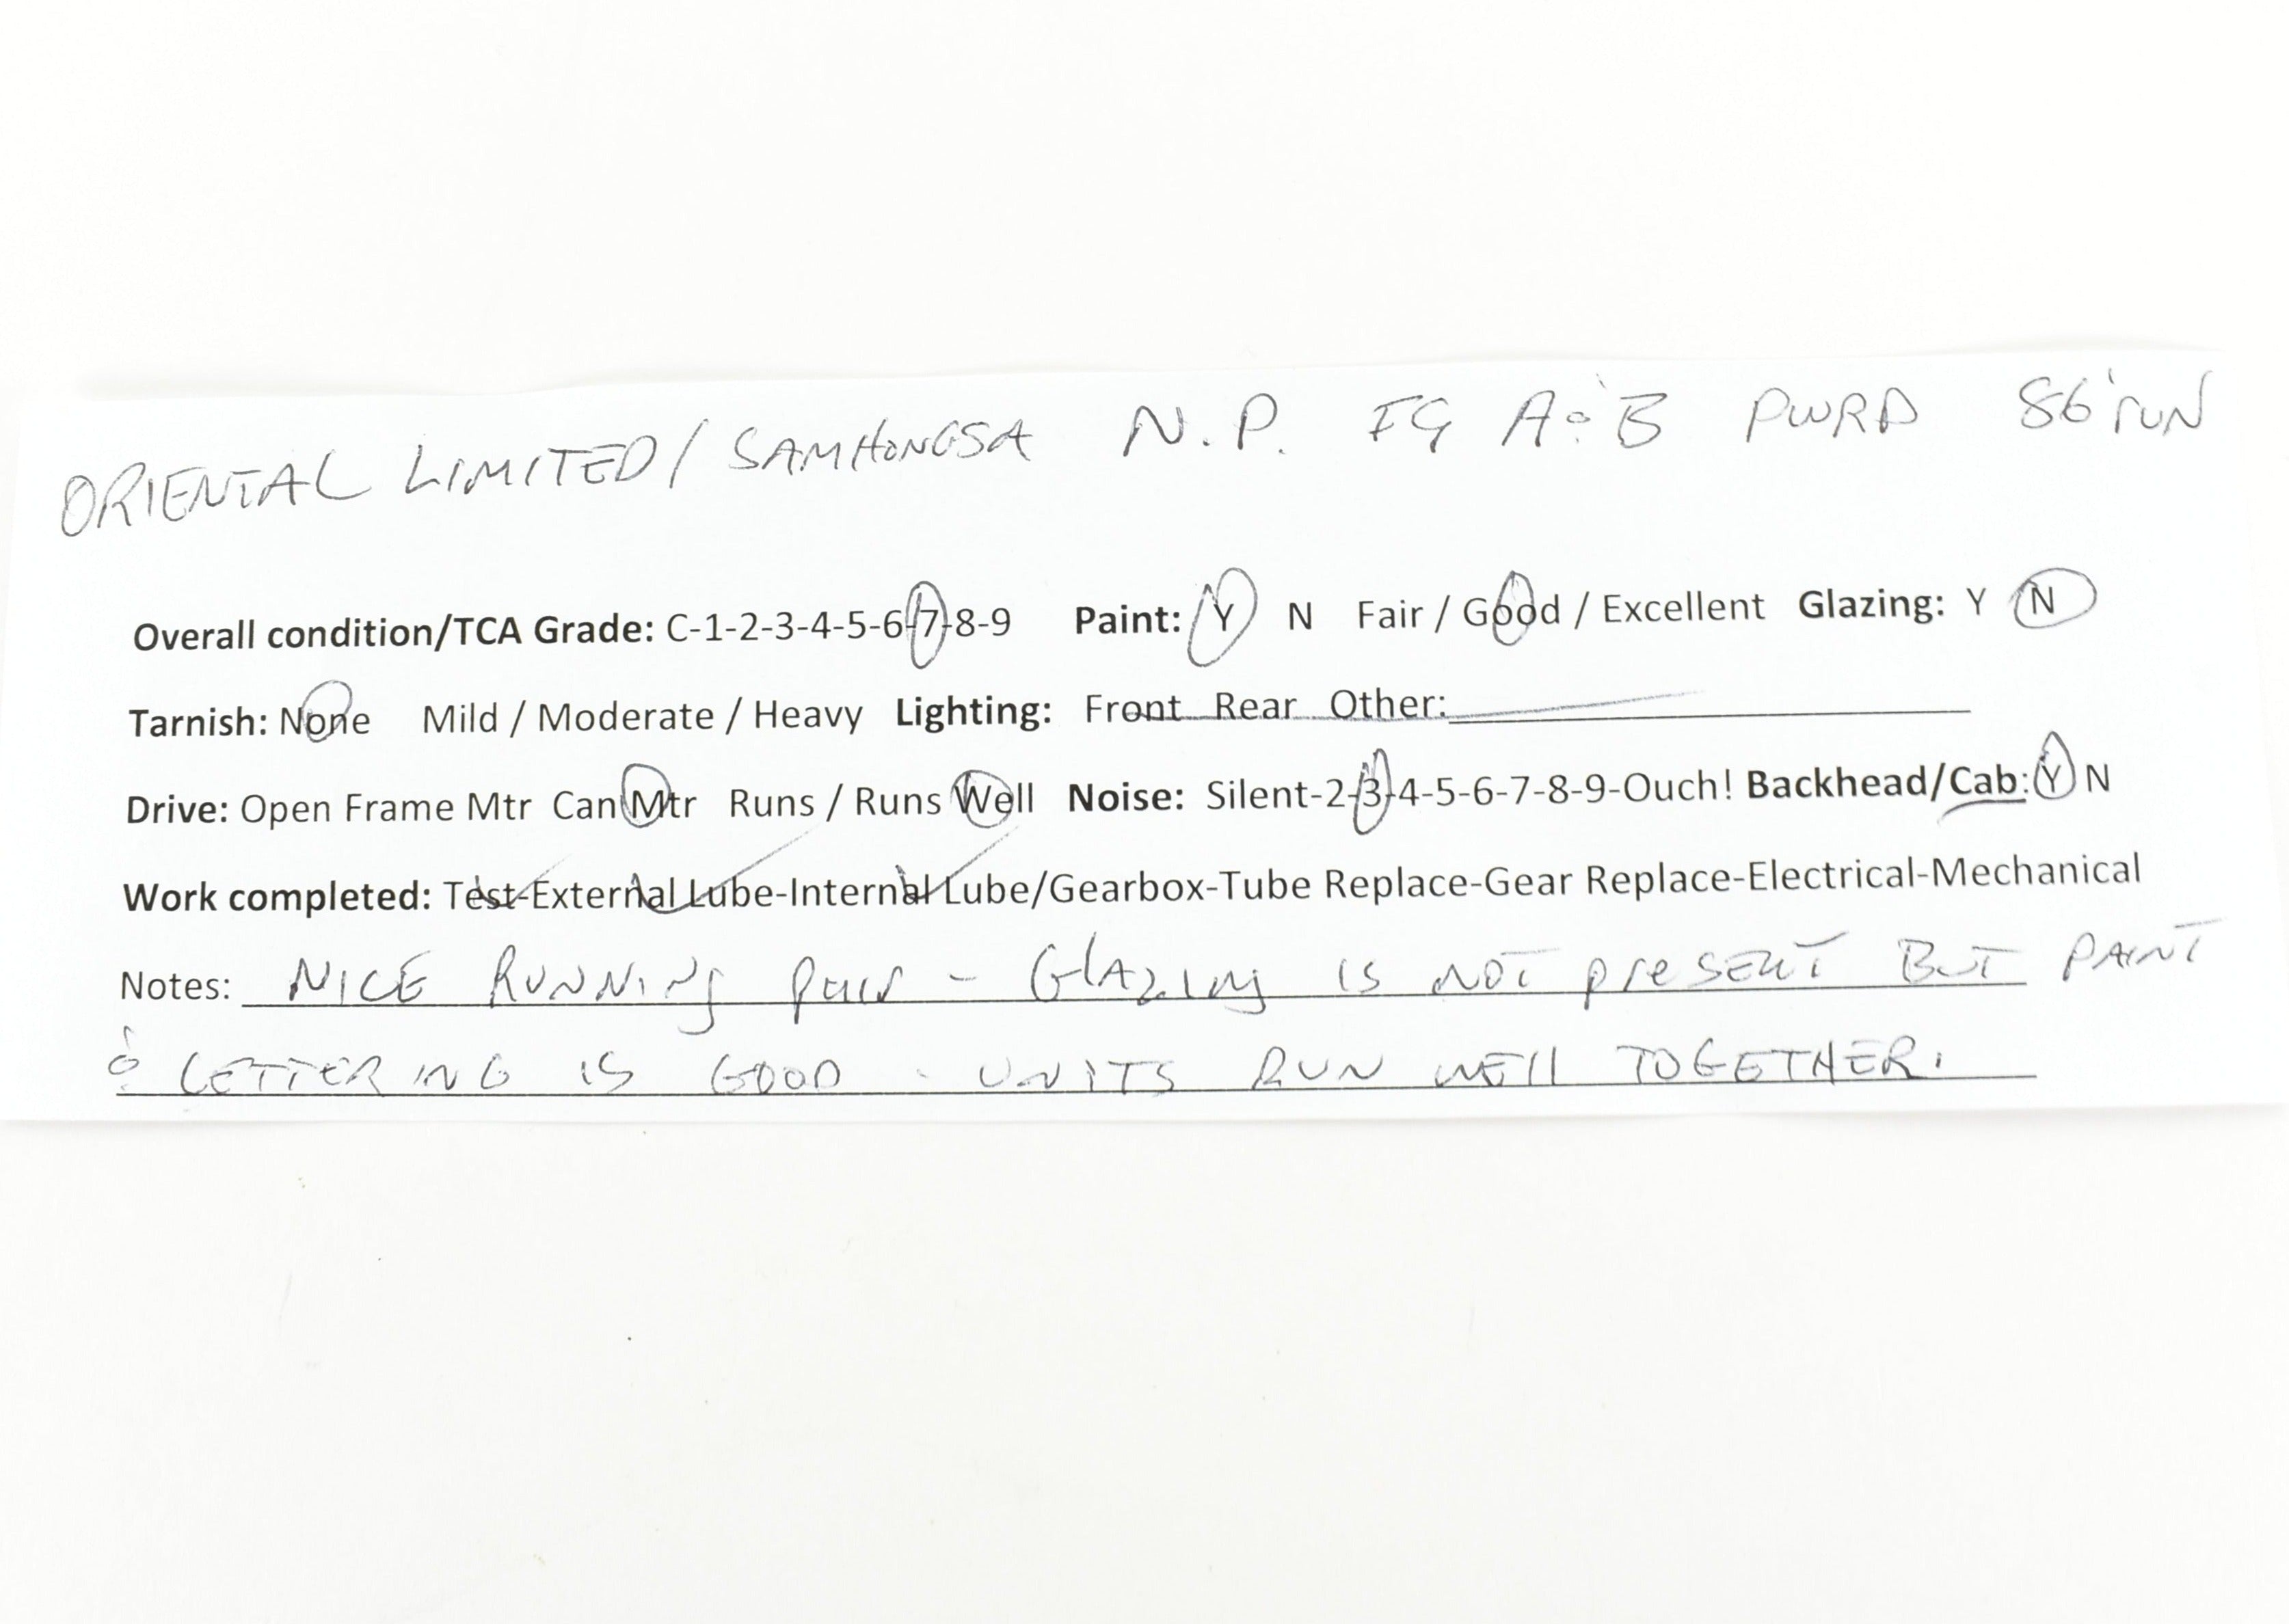 ORIENTAL LIMITED/SAMHONGSA N.P. F9 A & B PWRD 86' RUN
Overall condition/TCA Grade: C-1-2-3-4-5-6-7-8-9 Paint: Y N Fair / Good / Excellent Glazing: Y N
Tarnish: None Mild / Moderate / Heavy Lighting: Front Rear Other:
Drive: Open Frame Mtr Can Mtr Runs / Runs Well Noise: Silent-2-3-4-5-6-7-8-9-Ouch! Backhead/Cab: Y N
Work completed: Test-External Lube-Internal Lube/Gearbox-Tube Replace-Gear Replace-Electrical-Mechanical
Notes: NICE RUNNING PAIR - GLAZING IS NOT PRESENT BUT PAINT
& LETTERING IS GOOD. UNITS RUN WELL TOGETHER.